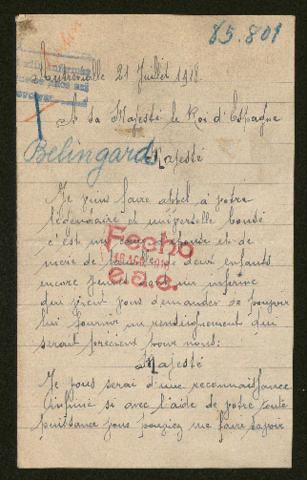 85.801
21 Juillet 1918
A sa Majesté le Roi d'Espagne
Belingard
Majesté
Je viens faire appel à votre
légendaire et universelle bonté
c'est un d'épouse et de
mère de famille de deux enfants
encore jeunes dont un infirme
qui vient vous demander de pouvoir
lui fournir un renseignement qui
serait précieux pour nous:
Fecho
e.a.s.
Majesté
Je vous serai d'une reconnaissance
infinie si avec l'aide de votre toute
puissance vous pouviez me faire savoir